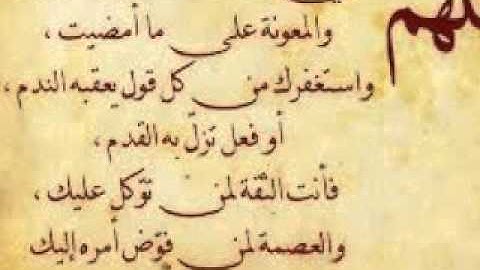 والمعونة على ما أمضيت ،
واستغفرك من كل قول يعقبه الندم ،
أو فعل تزلّ به القدم ،
فأنت الثقة لمن توكل عليك ،
والعصمة لمن فوّض أمره إليك